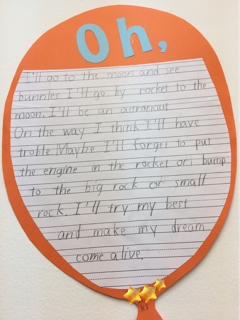 Oh,
I'll go to the moon and see
bunnies I'll go by rocket to the
moon. I'll be an astronaut
On the way I think I'll have
troble Maybe I'll forget to put
the engine in the rocket or i bump
to the big rock or small
rock. I'll try my best
and make my dream
come alive.